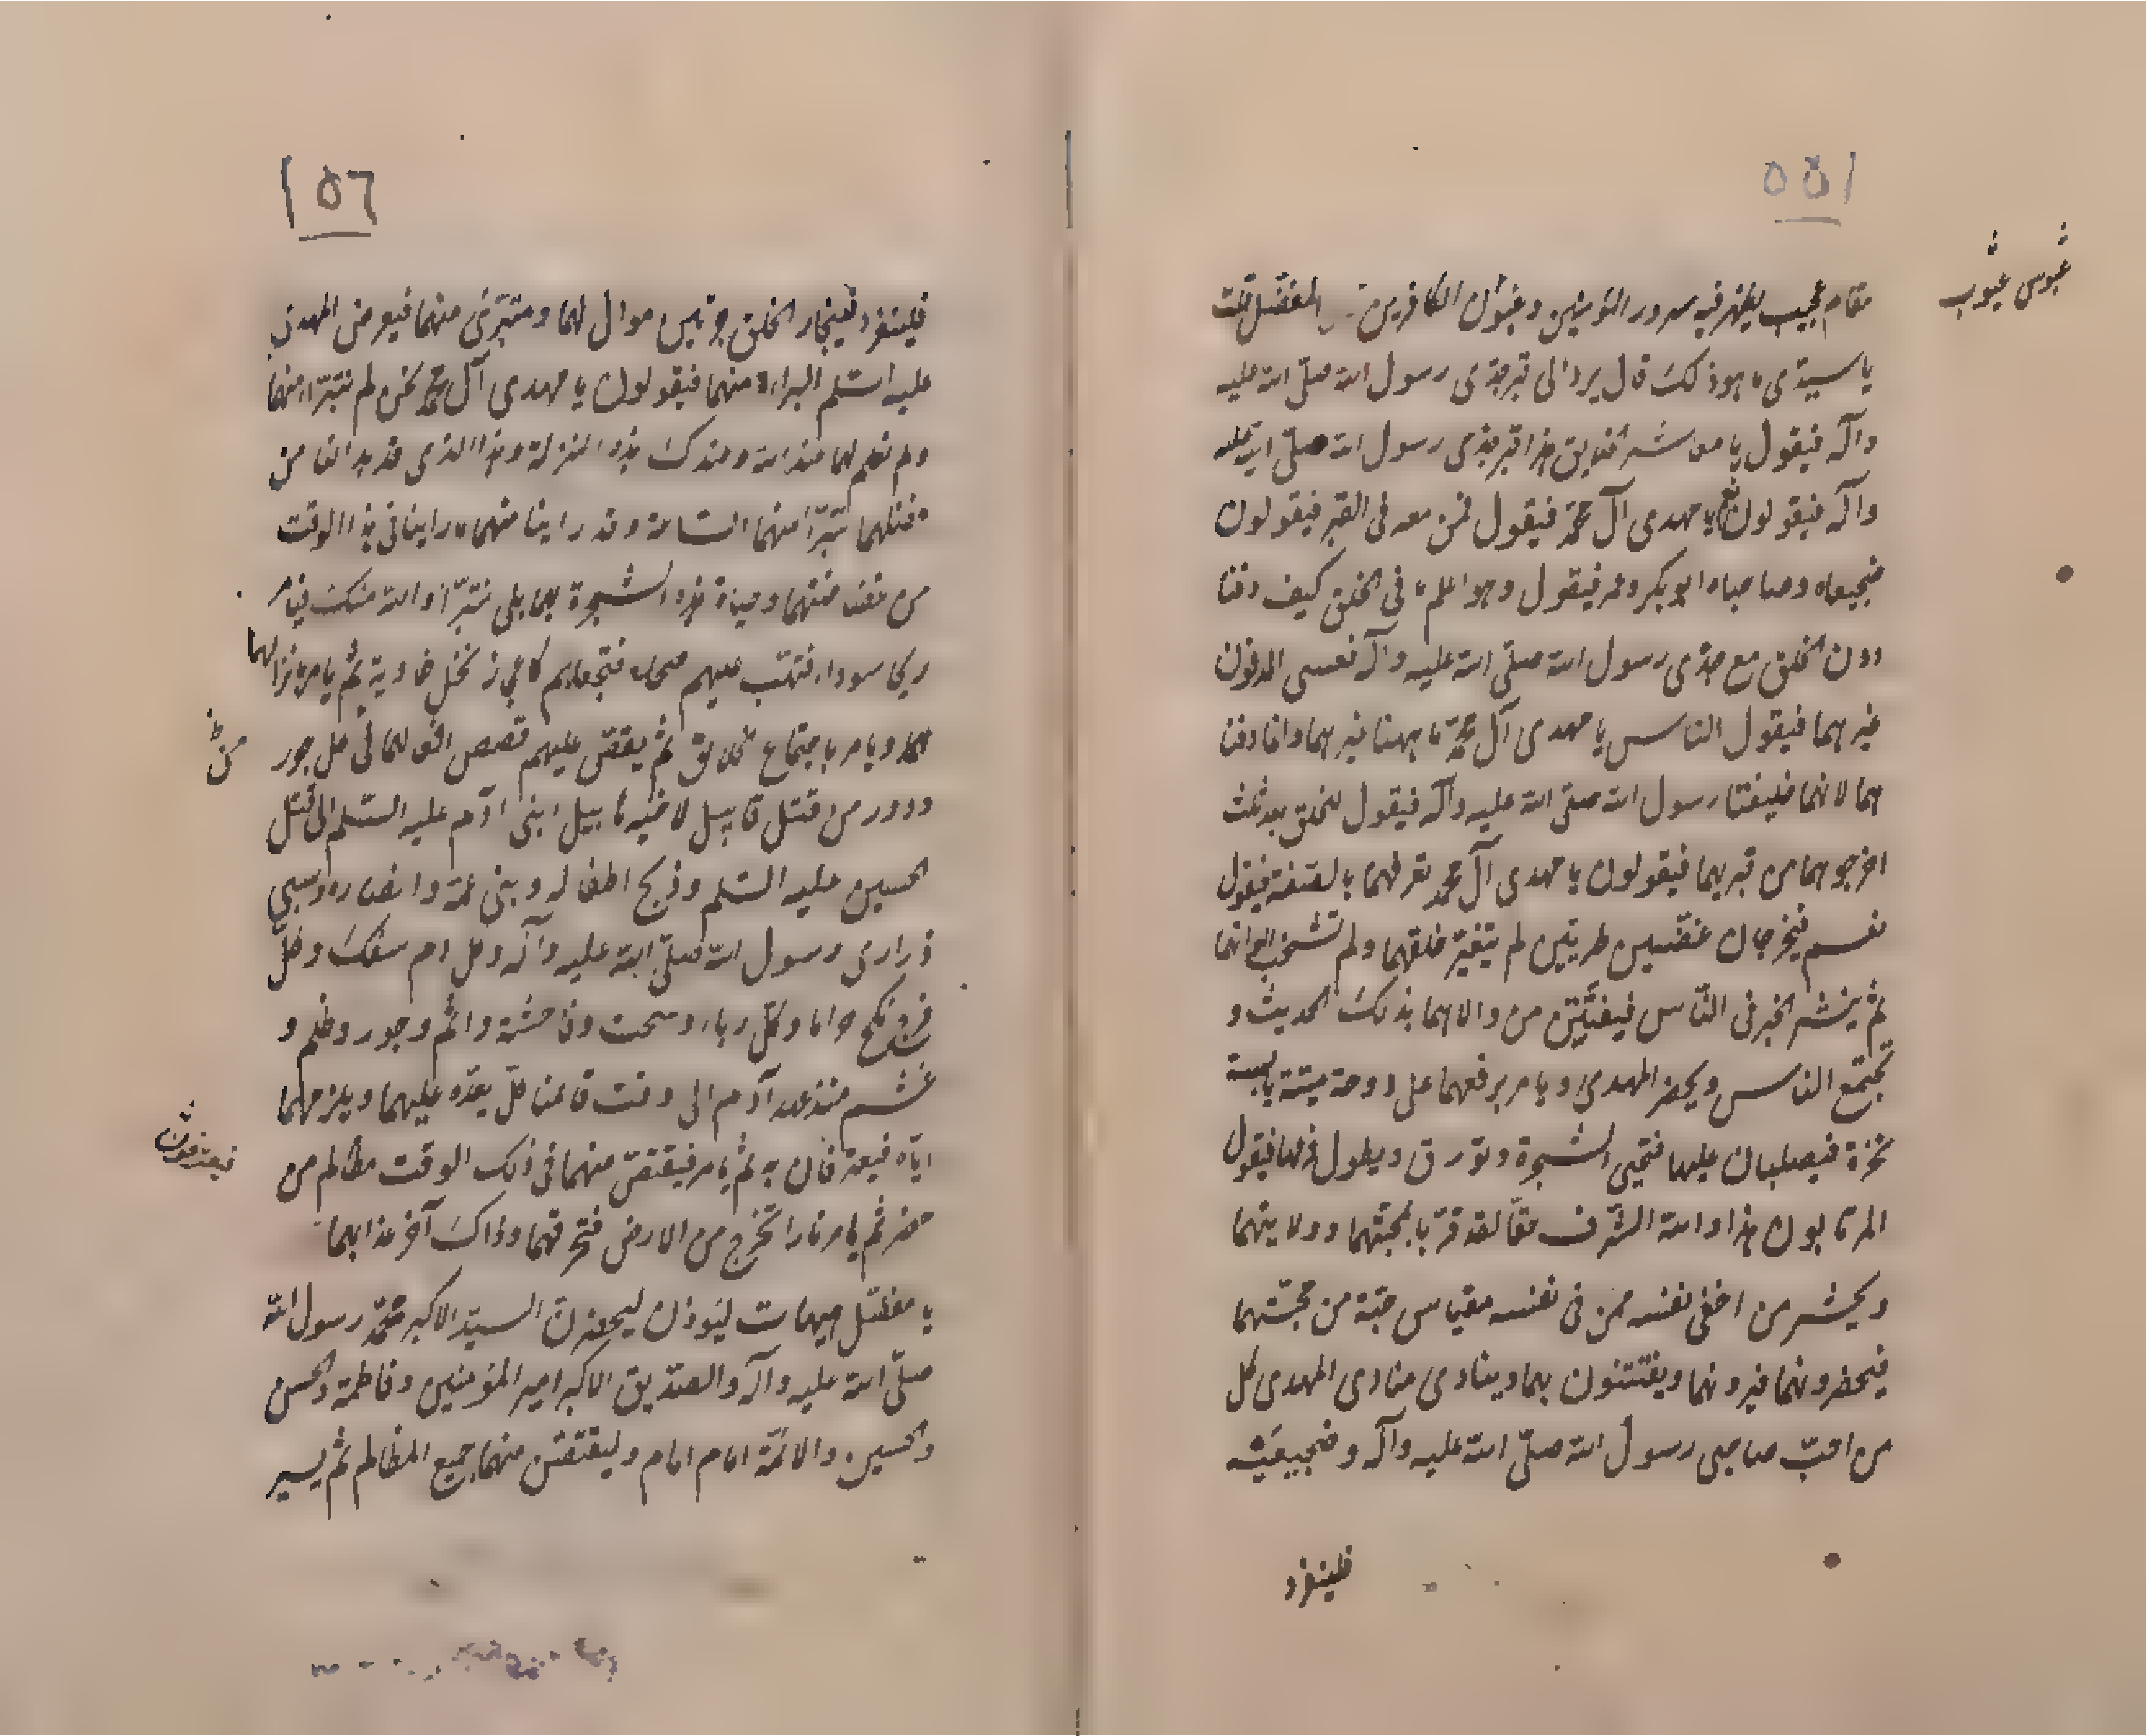 ١٥٥
مقام عجيب يظهر فيه سرور المؤمنين و عبؤس الكافرين المفضل قلت
عبوس عيوب
يا سيدى ما هو ذلك قال يرد الى قبر جدى رسول الله صلّى الله عليه
وآله فيقول يا معاشر الخلايق هذا قبر جدى رسول الله صلّى الله عليه
وآله فيقولون نعم يا مهدى آل محمد فيقول فمن معه فى القبر فيقولون
ضجيعاه وصاحباه ابو بكر وعمر فيقول وهو اعلم فى الخلق كيف دفنا
دون الخلق مع جدى رسول الله صلّى الله عليه وآله فعسى المدفون
غيرهما فيقول الناس يا مهدى آل محمد ما ههنا غيرهما وانما دفنا
هما لانهما خليفتا رسول الله صلّى الله عليه وآله فيقول للخلق بعد ثلث
اخرجوهما من قبريهما فيقولون يا مهدى آل محمد نعرفهما بالصفة فيقول
نعم فيخرجان غضّين طريّين لم يتغيّر خلقهما ولم تشخب الوانهما
ثم ينشر الخبر فى النّاس فيفتتن من والاهما بذلك الحديث و
تجتمع الناس ويحضر المهدى ويامر برفعهما على دوحة ميتة يابسة
نخرة فيصلبان عليها فتحيى الشجرة وتورق ويطول فرعها فيقول
المرتابون هذا والله الشرف حقّا لقد فزنا بمحبّتهما وولايتهما
ويحشر من اخفى نفسه ممن فى نفسه مقياس حبّة من محبّتهما
فيحضرونهما فيرونهما ويفتتنون بهما وينادى منادى المهدى كل
من احبّ صاحبى رسول الله صلّى الله عليه وآله وضجيعيه
فلينفرد
١٥٦
فلينفرد فينحاز الخلق جزئين موال لهما ومتبرّئ منهما فيعرض المهدى
عليه السّلم البراءة منهما فيقولون يا مهدى آل محمد نحن لم نتبرّا منهما
ولم نعلم لهما عند الله وعندك هذه المنزلة وهذا الذى قد بدا لنا من
فضلهما نتبرّأ منهما الساعة وقد راينا منهما ما راينا فى هذا الوقت
من غضاضتهما وحياة هذه الشجرة بهما بلى نتبرّأ والله منك فيامر
ريحا سوداء فتهبّ عليهم فتجعلهم كاعجاز نخل خاوية ثم يامر بانزالهما
اليه ويامر باجتماع الخلايق ثم يقصّ عليهم قصص افعالهما فى كل جور
ودور من قتل قابيل لاخيه هابيل ابنى آدم عليه السّلم الى قتل
الحسين عليه السّلم وذبح اطفاله وبنى عمّه وانصاره وسبى
ذرارى رسول الله صلّى الله عليه وآله وكل دم سفك وكلّ
فرج نكح حراما وكلّ رباء وسحت وفاحشة واثم وجور وظلم و
غشم منذ عهد آدم الى وقت قائمنا كلّ يعدّه عليهما ويلزمهما
ايّاه فيعترفان به ثم يامر فيقتصّ منهما فى ذلك الوقت مظالم من
فيعترفون
حضر ثم يامر نارا تخرج من الارض فتحرقهما وذاك آخر عذابهما
يا مفضّل هيهات ليؤذن ليحضرن السيّد الاكبر محمّد رسول الله
صلّى الله عليه وآله والصدّيق الاكبر امير المؤمنين وفاطمة والحسن
والحسين والائمّة امام امام وليقتصّن منهما جميع المظالم ثم يسير